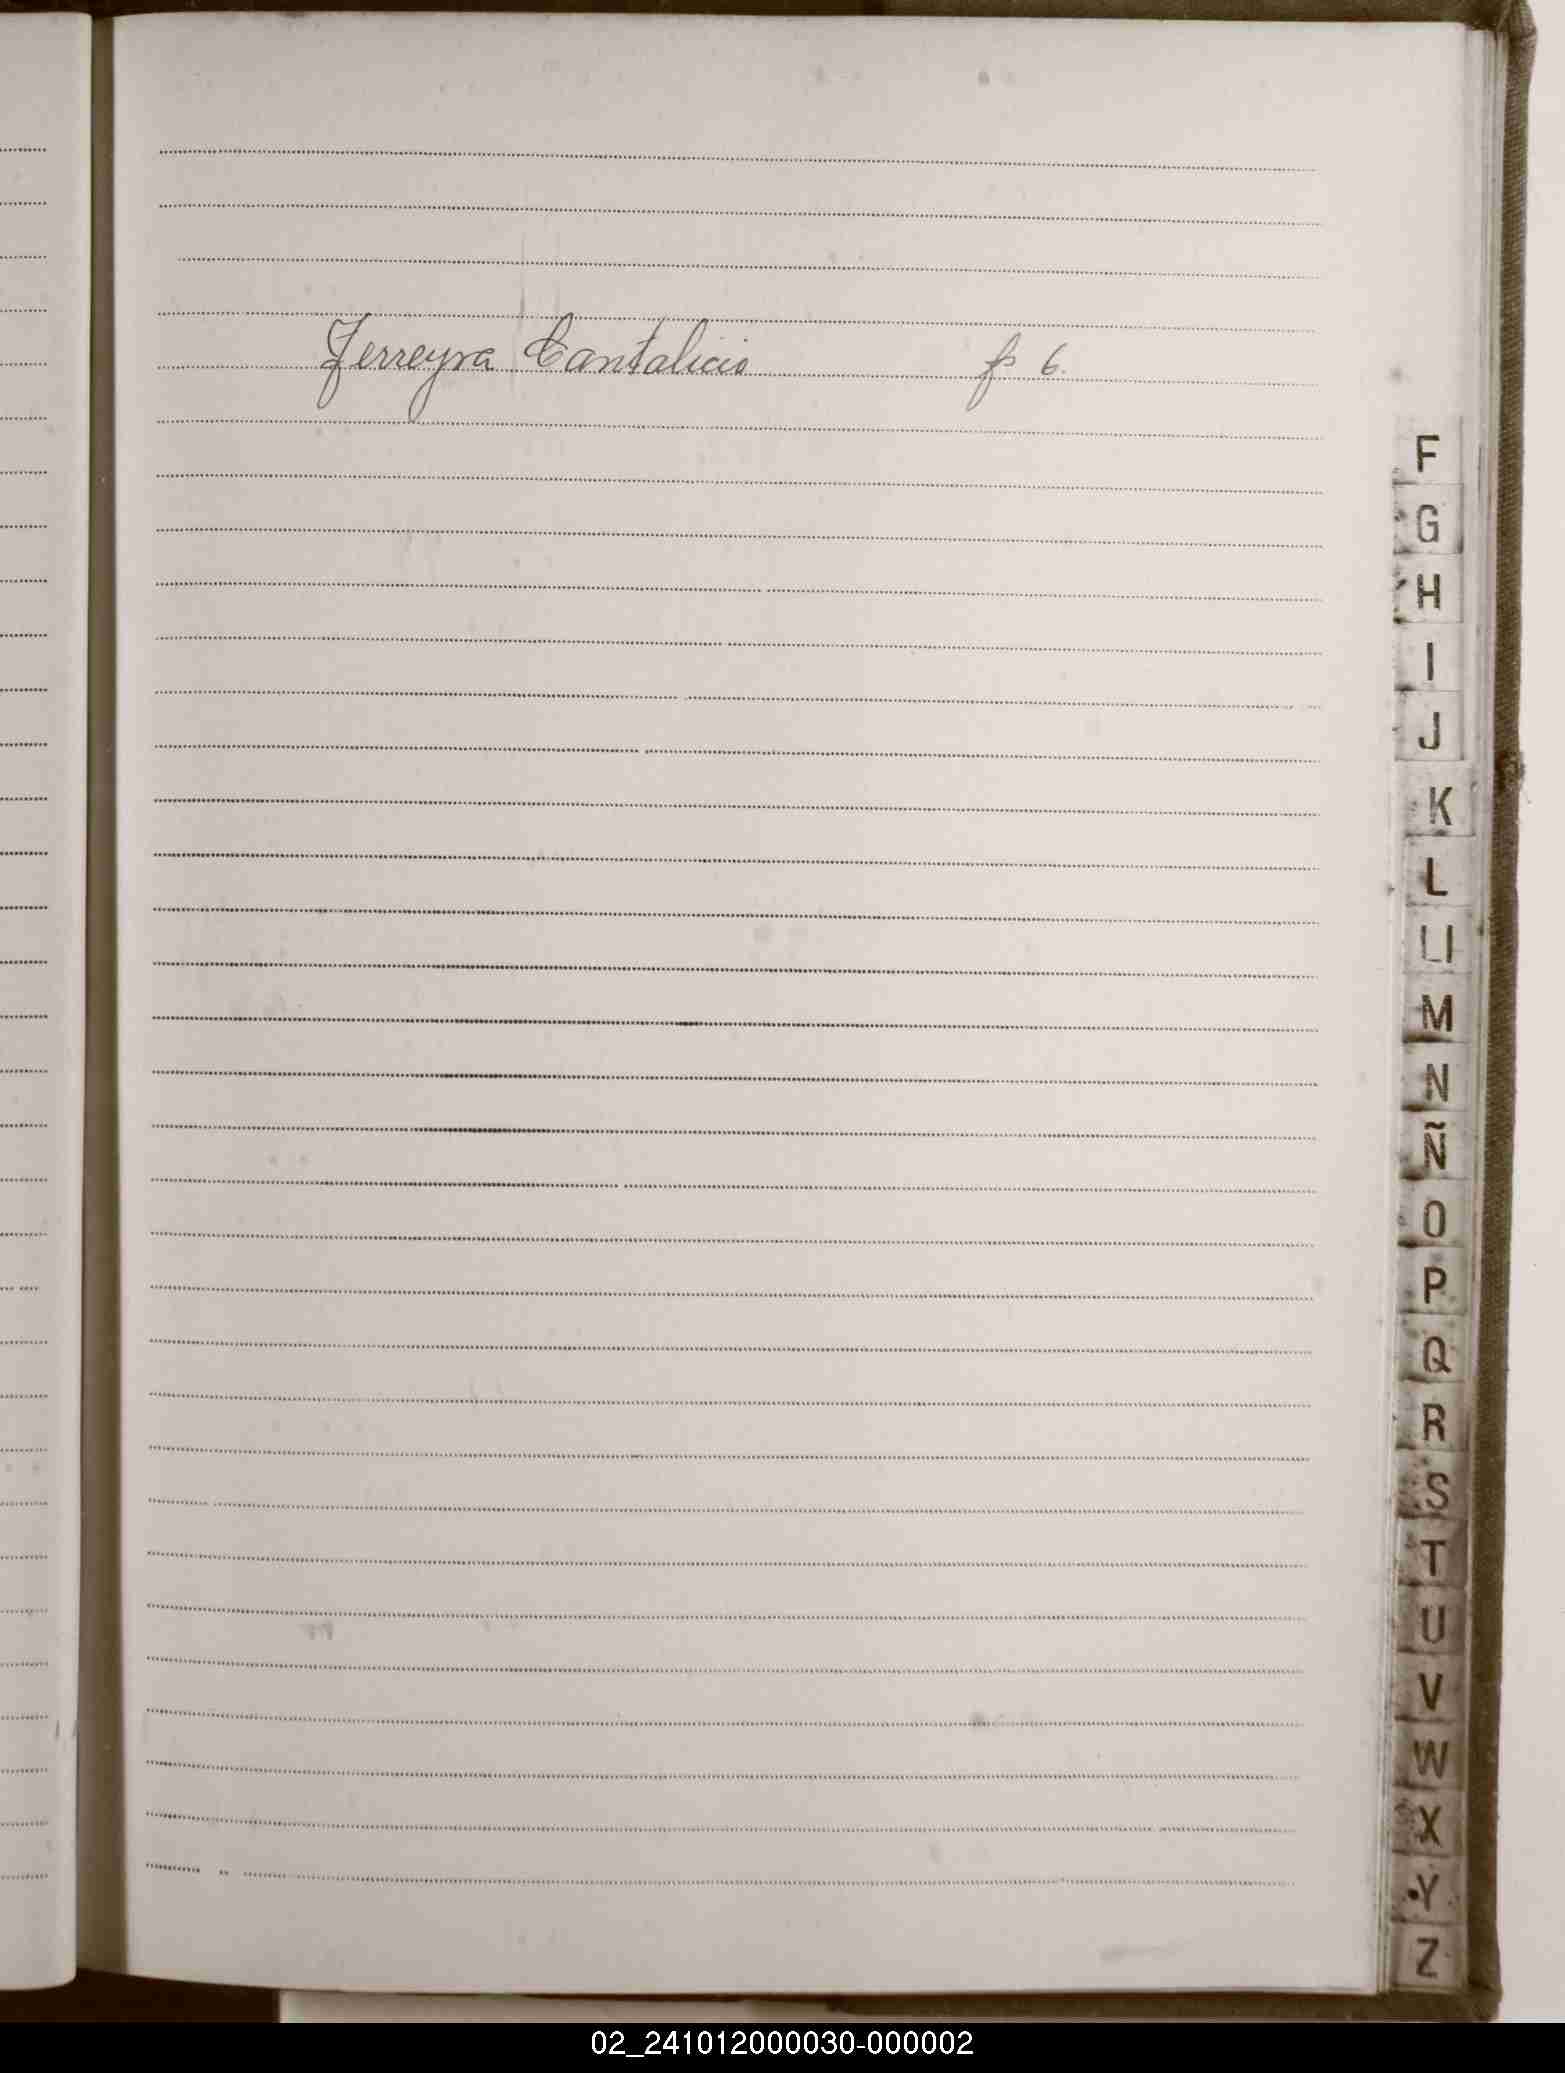 Ferreyra Cantalicio fs 6.
F
G
H
I
J
K
L
Ll
M
N
Ñ
O
P
Q
R
S
T
U
V
W
X
Y
Z
02_241012000030-000002